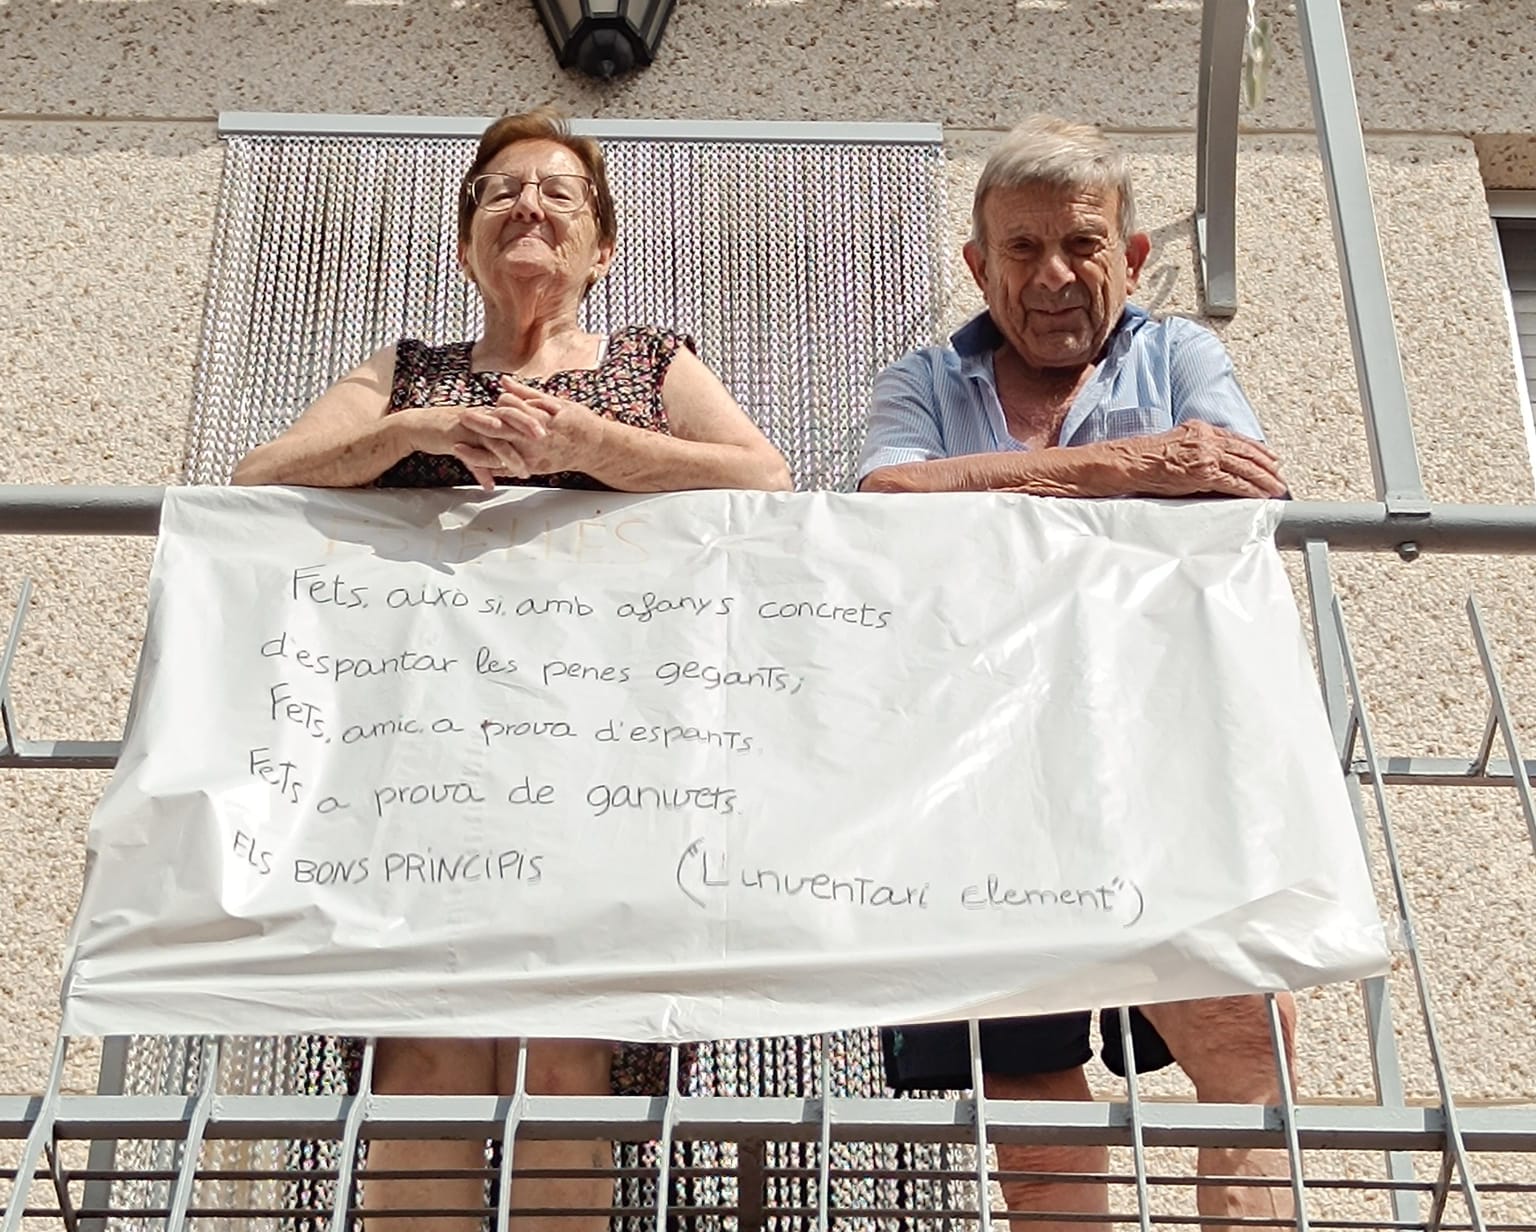 ESTELLÉS
Fets, això si, amb afanys concrets
d'espantar les penes gegants;
Fets, amic, a prova d'espants.
Fets a prova de ganivets.
ELS BONS PRINCIPIS ("L'inventari clement")